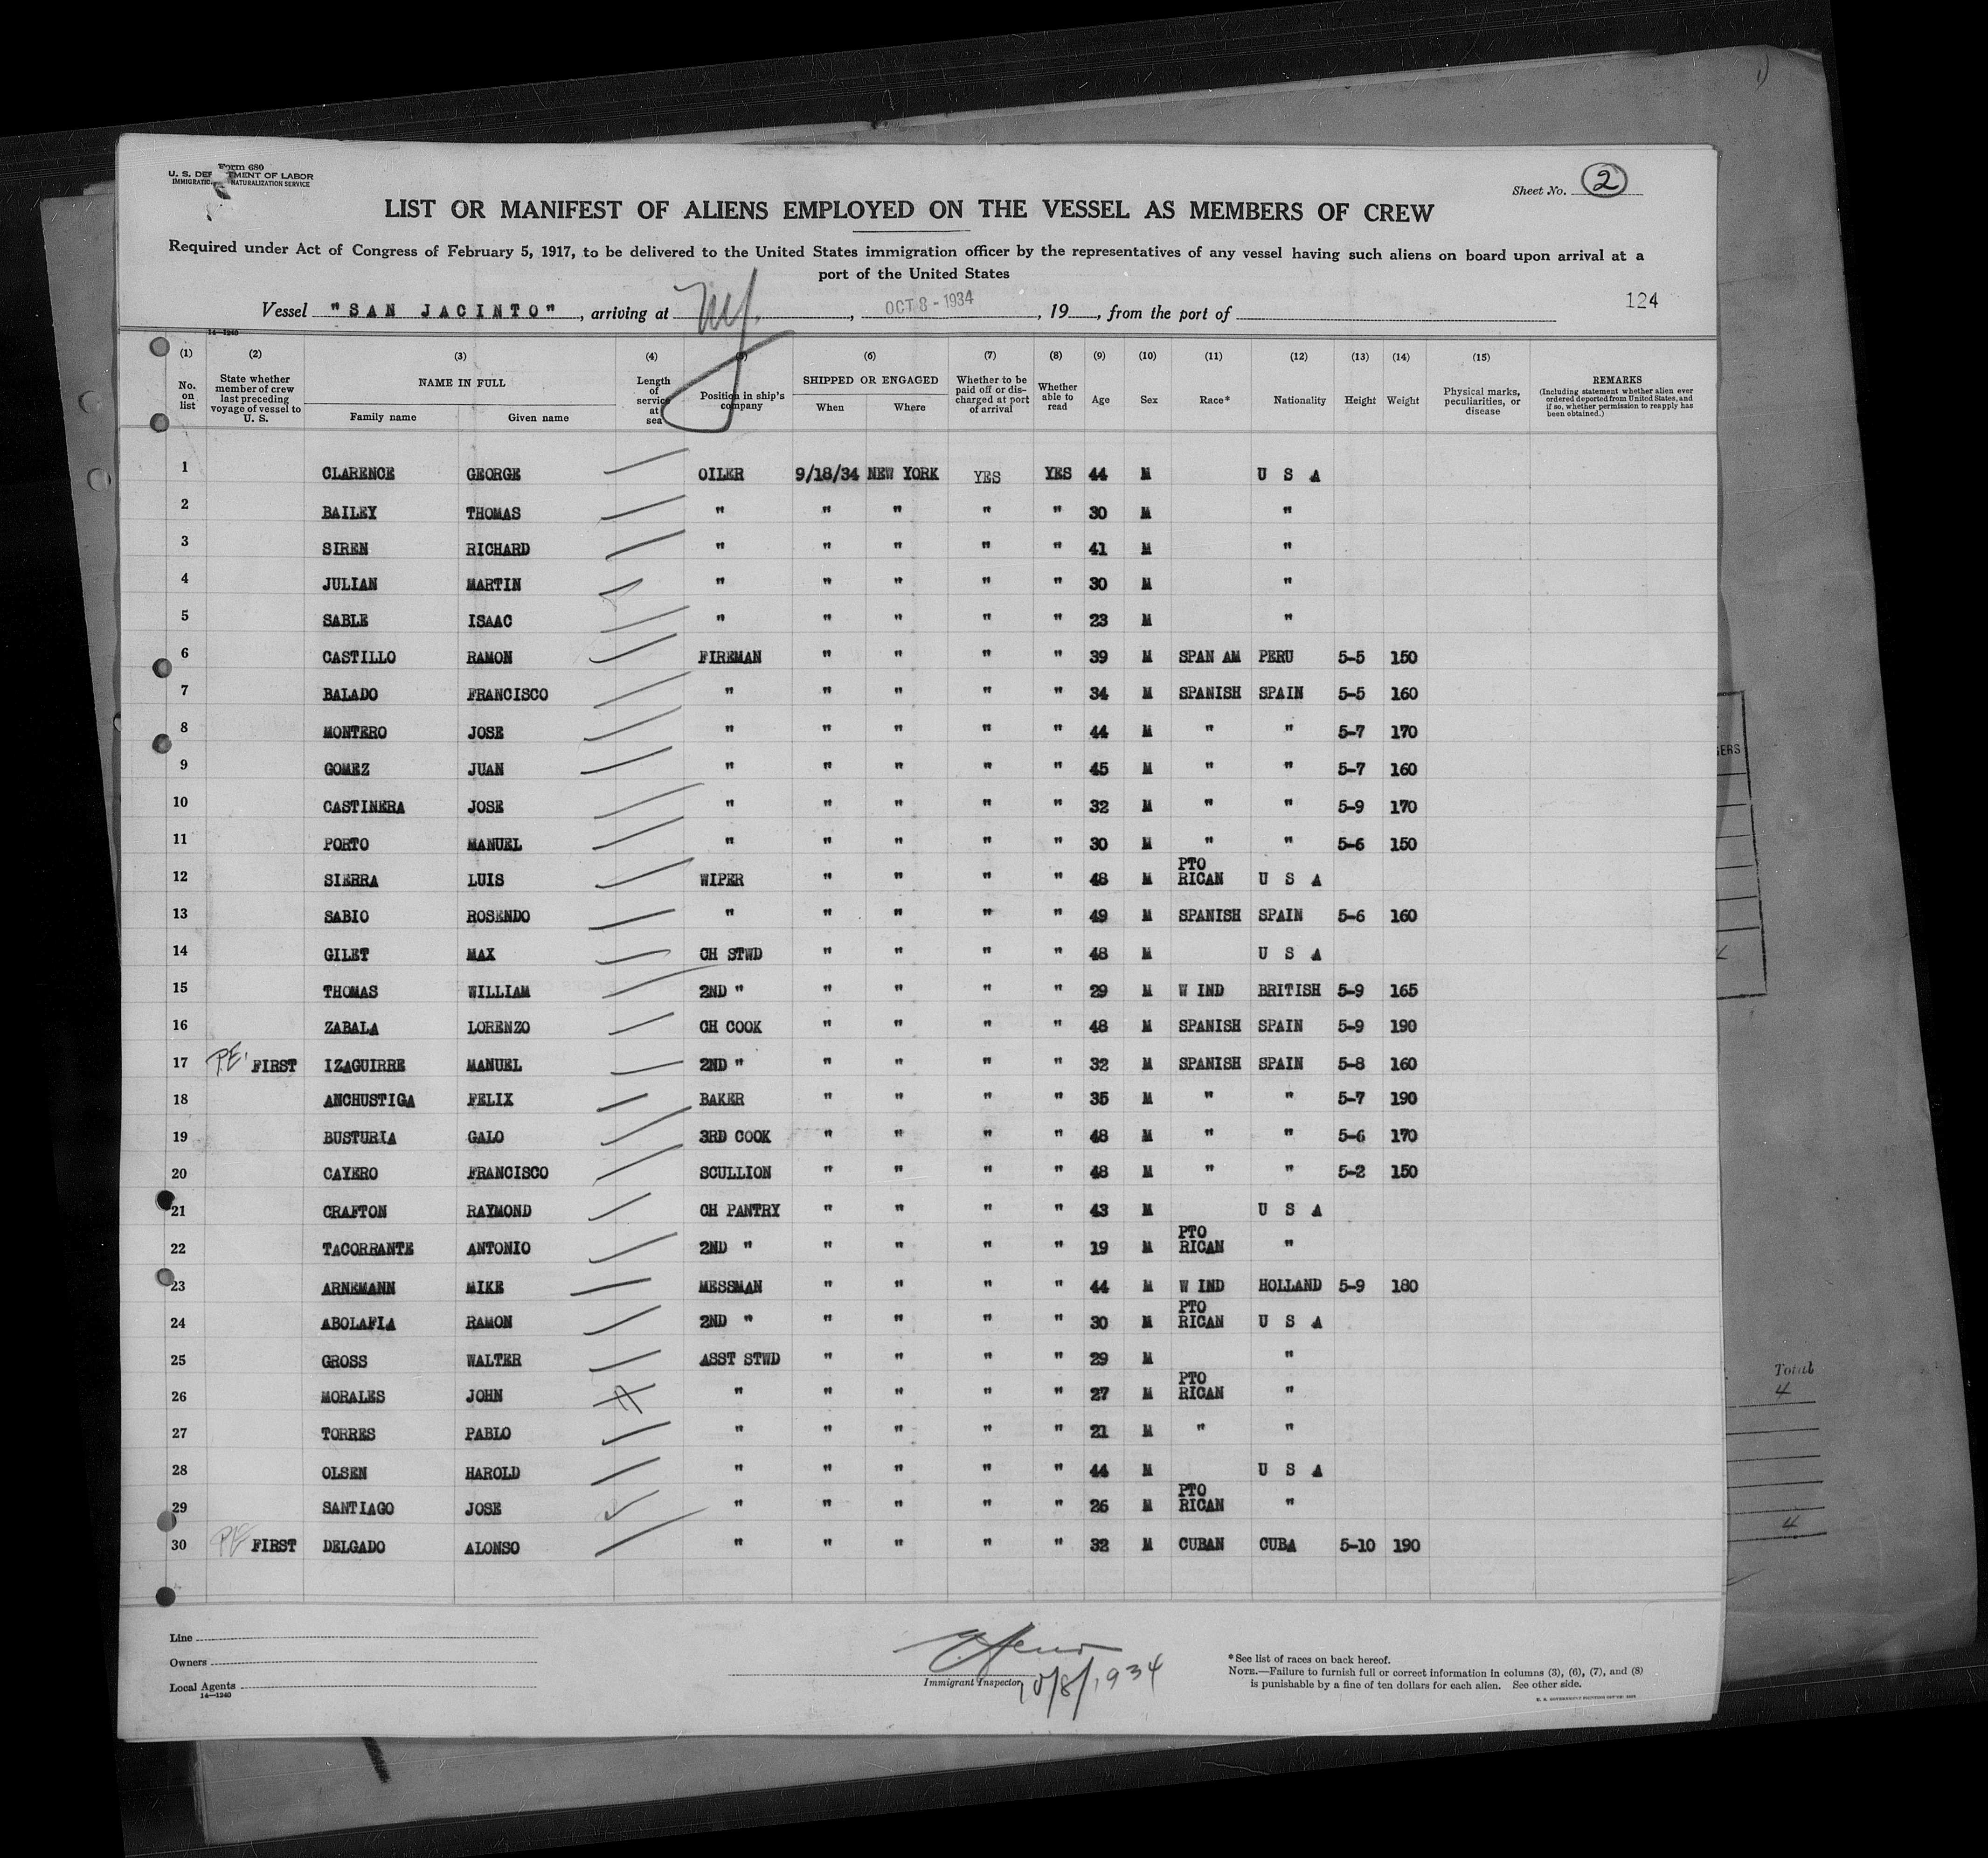 Form 680
U. S. DEP TMENT OF LABOR
IMMIGRATIO NATURALIZATION SERVICE
Sheet No. 2
LIST OR MANIFEST OF ALIENS EMPLOYED ON THE VESSEL AS MEMBERS OF CREW
Required under Act of Congress of February 5, 1917, to be delivered to the United States immigration officer by the representatives of any vessel having such aliens on board upon arrival at a
port of the United States
Vessel "SAN JACINTO", arriving at NY., OCT 8 - 1934, 19, from the port of 124
14—1240
(1) (2) (3) (4) (5) (6) (7) (8) (9) (10) (11) (12) (13) (14) (15)
No. on list State whether member of crew last preceding voyage of vessel to U. S. NAME IN FULL Family name Given name Length of service at sea Position in ship's company SHIPPED OR ENGAGED When Where Whether to be paid off or discharged at port of arrival Whether able to read Age Sex Race* Nationality Height Weight Physical marks, peculiarities, or disease REMARKS (Including statement whether alien ever ordered deported from United States, and if so, whether permission to reapply has been obtained.)
1 CLARENCE GEORGE OILER 9/18/34 NEW YORK YES YES 44 M U S A
2 BAILEY THOMAS " " " " " 30 M "
3 SIREN RICHARD " " " " " 41 M "
4 JULIAN MARTIN " " " " " 30 M "
5 SABLE ISAAC " " " " " 23 M "
6 CASTILLO RAMON FIREMAN " " " " 39 M SPAN AM PERU 5-5 150
7 BALADO FRANCISCO " " " " " 34 M SPANISH SPAIN 5-5 160
8 MONTERO JOSE " " " " " 44 M " " 5-7 170
9 GOMEZ JUAN " " " " " 45 M " " 5-7 160
10 CASTINERA JOSE " " " " " 32 M " " 5-9 170
11 PORTO MANUEL " " " " " 30 M " " 5-6 150
12 SIERRA LUIS WIPER " " " " 48 M PTO RICAN U S A
13 SABIO ROSENDO " " " " " 49 M SPANISH SPAIN 5-6 160
14 GILET MAX CH STWD " " " " 48 M U S A
15 THOMAS WILLIAM 2ND " " " " " 29 M W IND BRITISH 5-9 165
16 ZABALA LORENZO CH COOK " " " " 48 M SPANISH SPAIN 5-9 190
17 P.E. FIRST IZAGUIRRE MANUEL 2ND " " " " " 32 M SPANISH SPAIN 5-8 160
18 ANCHUSTIGA FELIX BAKER " " " " 35 M " " 5-7 190
19 BUSTURIA GALO 3RD COOK " " " " 48 M " " 5-6 170
20 CAYERO FRANCISCO SCULLION " " " " 48 M " " 5-2 150
21 CRAFTON RAYMOND CH PANTRY " " " " 43 M U S A
22 TACORRANTE ANTONIO 2ND " " " " " 19 M PTO RICAN "
23 ARNEMANN MIKE MESSMAN " " " " 44 M W IND HOLLAND 5-9 180
24 ABOLAFIA RAMON 2ND " " " " " 30 M PTO RICAN U S A
25 GROSS WALTER ASST STWD " " " " 29 M "
26 MORALES JOHN " " " " " 27 M PTO RICAN "
27 TORRES PABLO " " " " " 21 M " "
28 OLSEN HAROLD " " " " " 44 M U S A
29 SANTIAGO JOSE " " " " " 26 M PTO RICAN "
30 PE FIRST DELGADO ALONSO " " " " " 32 M CUBAN CUBA 5-10 190
Line
Owners
Local Agents
14—1240
Immigrant Inspector 10/8/1934
*See list of races on back hereof.
NOTE.—Failure to furnish full or correct information in columns (3), (6), (7), and (8)
is punishable by a fine of ten dollars for each alien. See other side.
Total
4
4